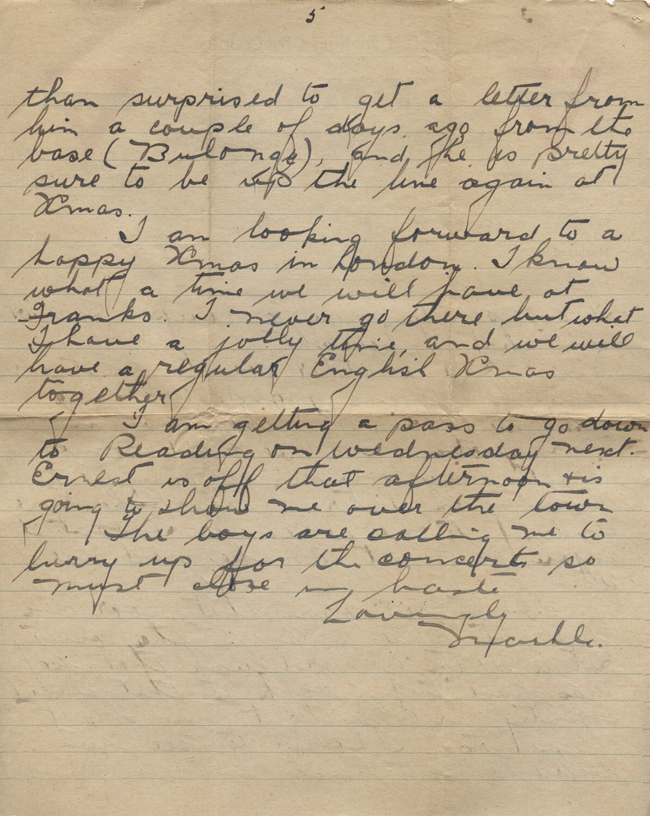 5
than surprised to get a letter from
him a couple of days ago from the
base (Bulonge), and he is pretty
sure to be up the line again at
Xmas.
I am looking forward to a
happy Xmas in London. I know
what a time we will have at
Franks. I never go there but what
I have a jolly time, and we will
have a regular English Xmas
together.
I am getting a pass to go down
to Reading on Wednesday next.
Ernest is off that afternoon + is
going to show me over the town
The boys are calling me to
hurry up for the concert so
must close in haste
Lovingly